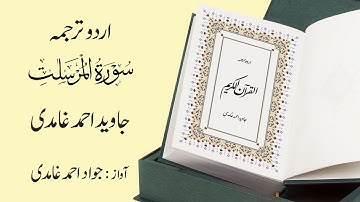 اردو ترجمہ
سُوْرَةُ الْمُرْسَلٰت
جاوید احمد غامدی
آواز : جواد احمد غامدی
اردو ترجمہ
القرآن الکریم
جاوید احمد غامدی